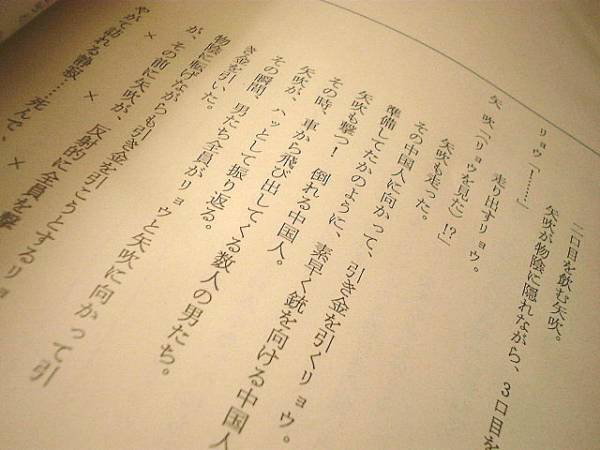 二口目を飲む矢吹。
矢吹が物陰に隠れながら、3口目を
リョウ「!……」
走り出すリョウ。
矢 吹「(リョウを見た)!?」
矢吹も走った。
その中国人に向かって、引き金を引くリョウ。
準備してたかのように、素早く銃を向ける中国人
矢吹も撃つ! 倒れる中国人。
その時、車から飛び出してくる数人の男たち。
矢吹が、ハッとして振り返る。
その瞬間、男たち全員がリョウと矢吹に向かって引
き金を引いた。
物陰に転げながらも引き金を引こうとするリョ
が、その前に矢吹が、反射的に全員を撃
× × ×
やがて訪れる静寂……死んで、